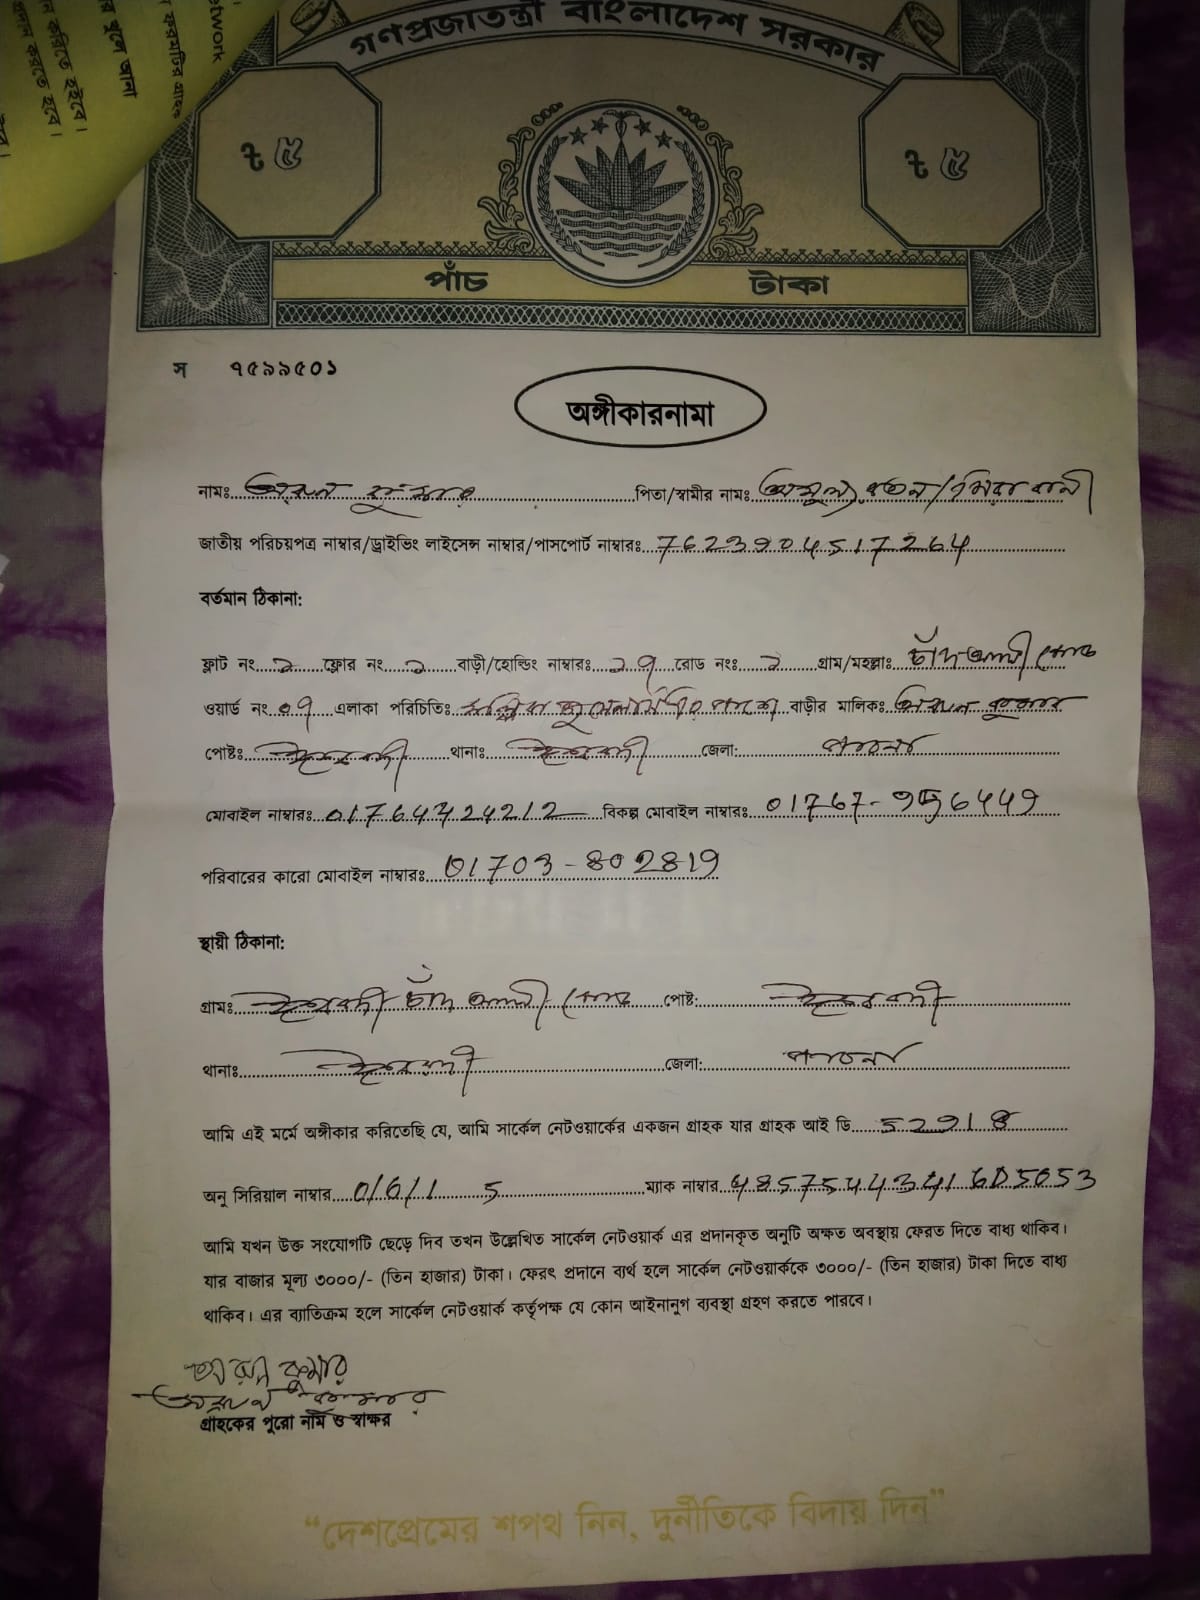 গণপ্রজাতন্ত্রী বাংলাদেশ সরকার
৳ ৫ ৳ ৫
পাঁচ টাকা
স ৭৫৯৯৫০১
অঙ্গীকারনামা
নামঃ অরুন কুমার পিতা/স্বামীর নামঃ
জাতীয় পরিচয়পত্র নাম্বার/ড্রাইভিং লাইসেন্স নাম্বার/পাসপোর্ট নাম্বারঃ 7623904517264
বর্তমান ঠিকানা:
ফ্লাট নং ২ ফ্লোর নং ২ বাড়ী/হোল্ডিং নাম্বারঃ ২৭ রোড নংঃ ২ গ্রাম/মহল্লাঃ চাঁদআলী মোড়
ওয়ার্ড নং ০৭ এলাকা পরিচিতিঃ পাশে বাড়ীর মালিকঃ কুমার
পোষ্টঃ ঈশ্বরদী থানাঃ ঈশ্বরদী জেলা: পাবনা
মোবাইল নাম্বারঃ 01764724212 বিকল্প মোবাইল নাম্বারঃ 01767-956449
পরিবারের কারো মোবাইল নাম্বারঃ 01703-802819
স্থায়ী ঠিকানা:
গ্রামঃ ঈশ্বরদী চাঁদ আলী মোড় পোষ্ট: ঈশ্বরদী
থানাঃ ঈশ্বরদী জেলা: পাবনা
আমি এই মর্মে অঙ্গীকার করিতেছি যে, আমি সার্কেল নেটওয়ার্কের একজন গ্রাহক যার গ্রাহক আই ডি 52918
অনু সিরিয়াল নাম্বার 0/6/1 5 ম্যাক নাম্বার 485754434416D5653
আমি যখন উক্ত সংযোগটি ছেড়ে দিব তখন উল্লেখিত সার্কেল নেটওয়ার্ক এর প্রদানকৃত অনুটি অক্ষত অবস্থায় ফেরত দিতে বাধ্য থাকিব।
যার বাজার মূল্য ৩০০০/- (তিন হাজার) টাকা। ফেরৎ প্রদানে ব্যর্থ হলে সার্কেল নেটওয়ার্ককে ৩০০০/- (তিন হাজার) টাকা দিতে বাধ্য
থাকিব। এর ব্যাতিক্রম হলে সার্কেল নেটওয়ার্ক কর্তৃপক্ষ যে কোন আইনানুগ ব্যবস্থা গ্রহণ করতে পারবে।
অরুন কুমার
অরুন কুমার
গ্রাহকের পুরো নাম ও স্বাক্ষর
“দেশপ্রেমের শপথ নিন, দুর্নীতিকে বিদায় দিন”